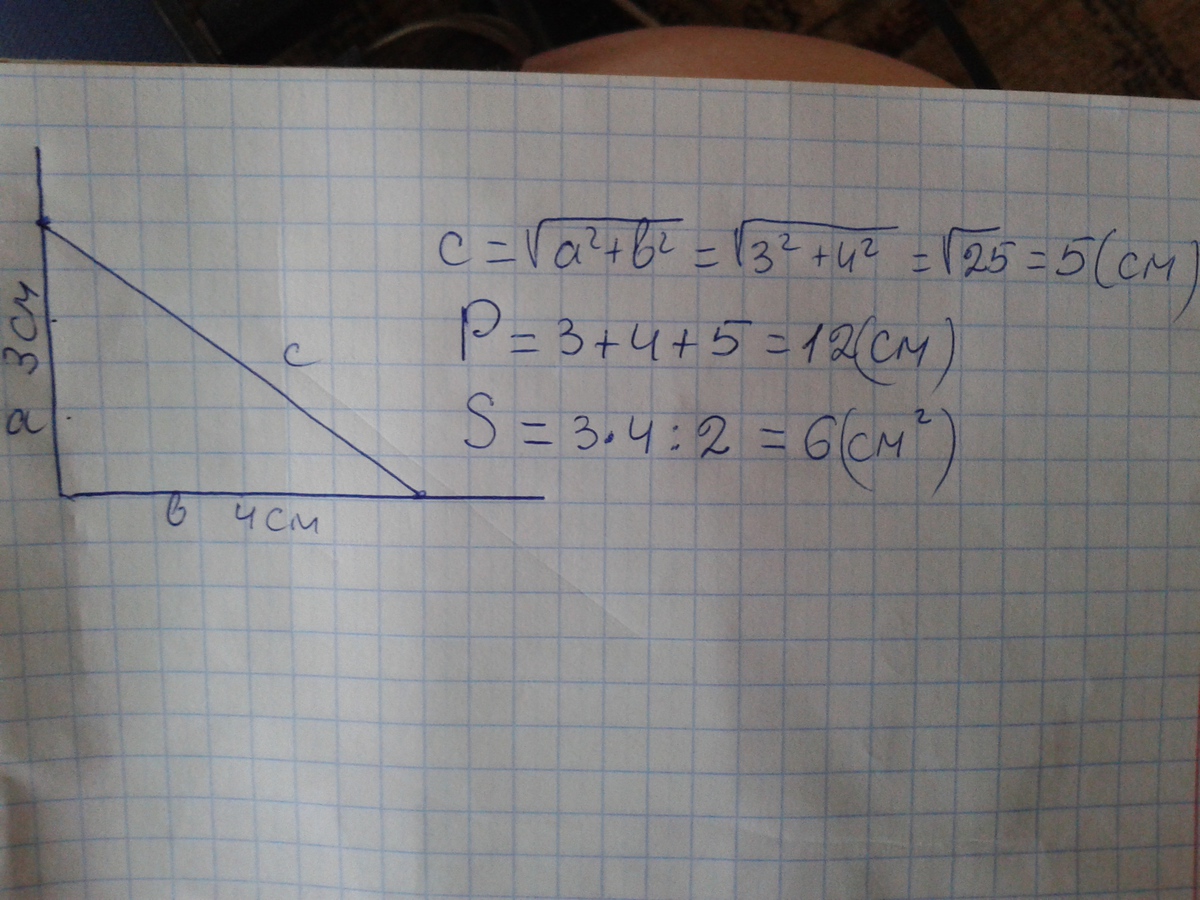 a 3см
c
в 4см
c = √a²+в² = √3²+4² = √25 = 5(см)
P = 3+4+5 = 12(см)
S = 3·4:2 = 6(см²)